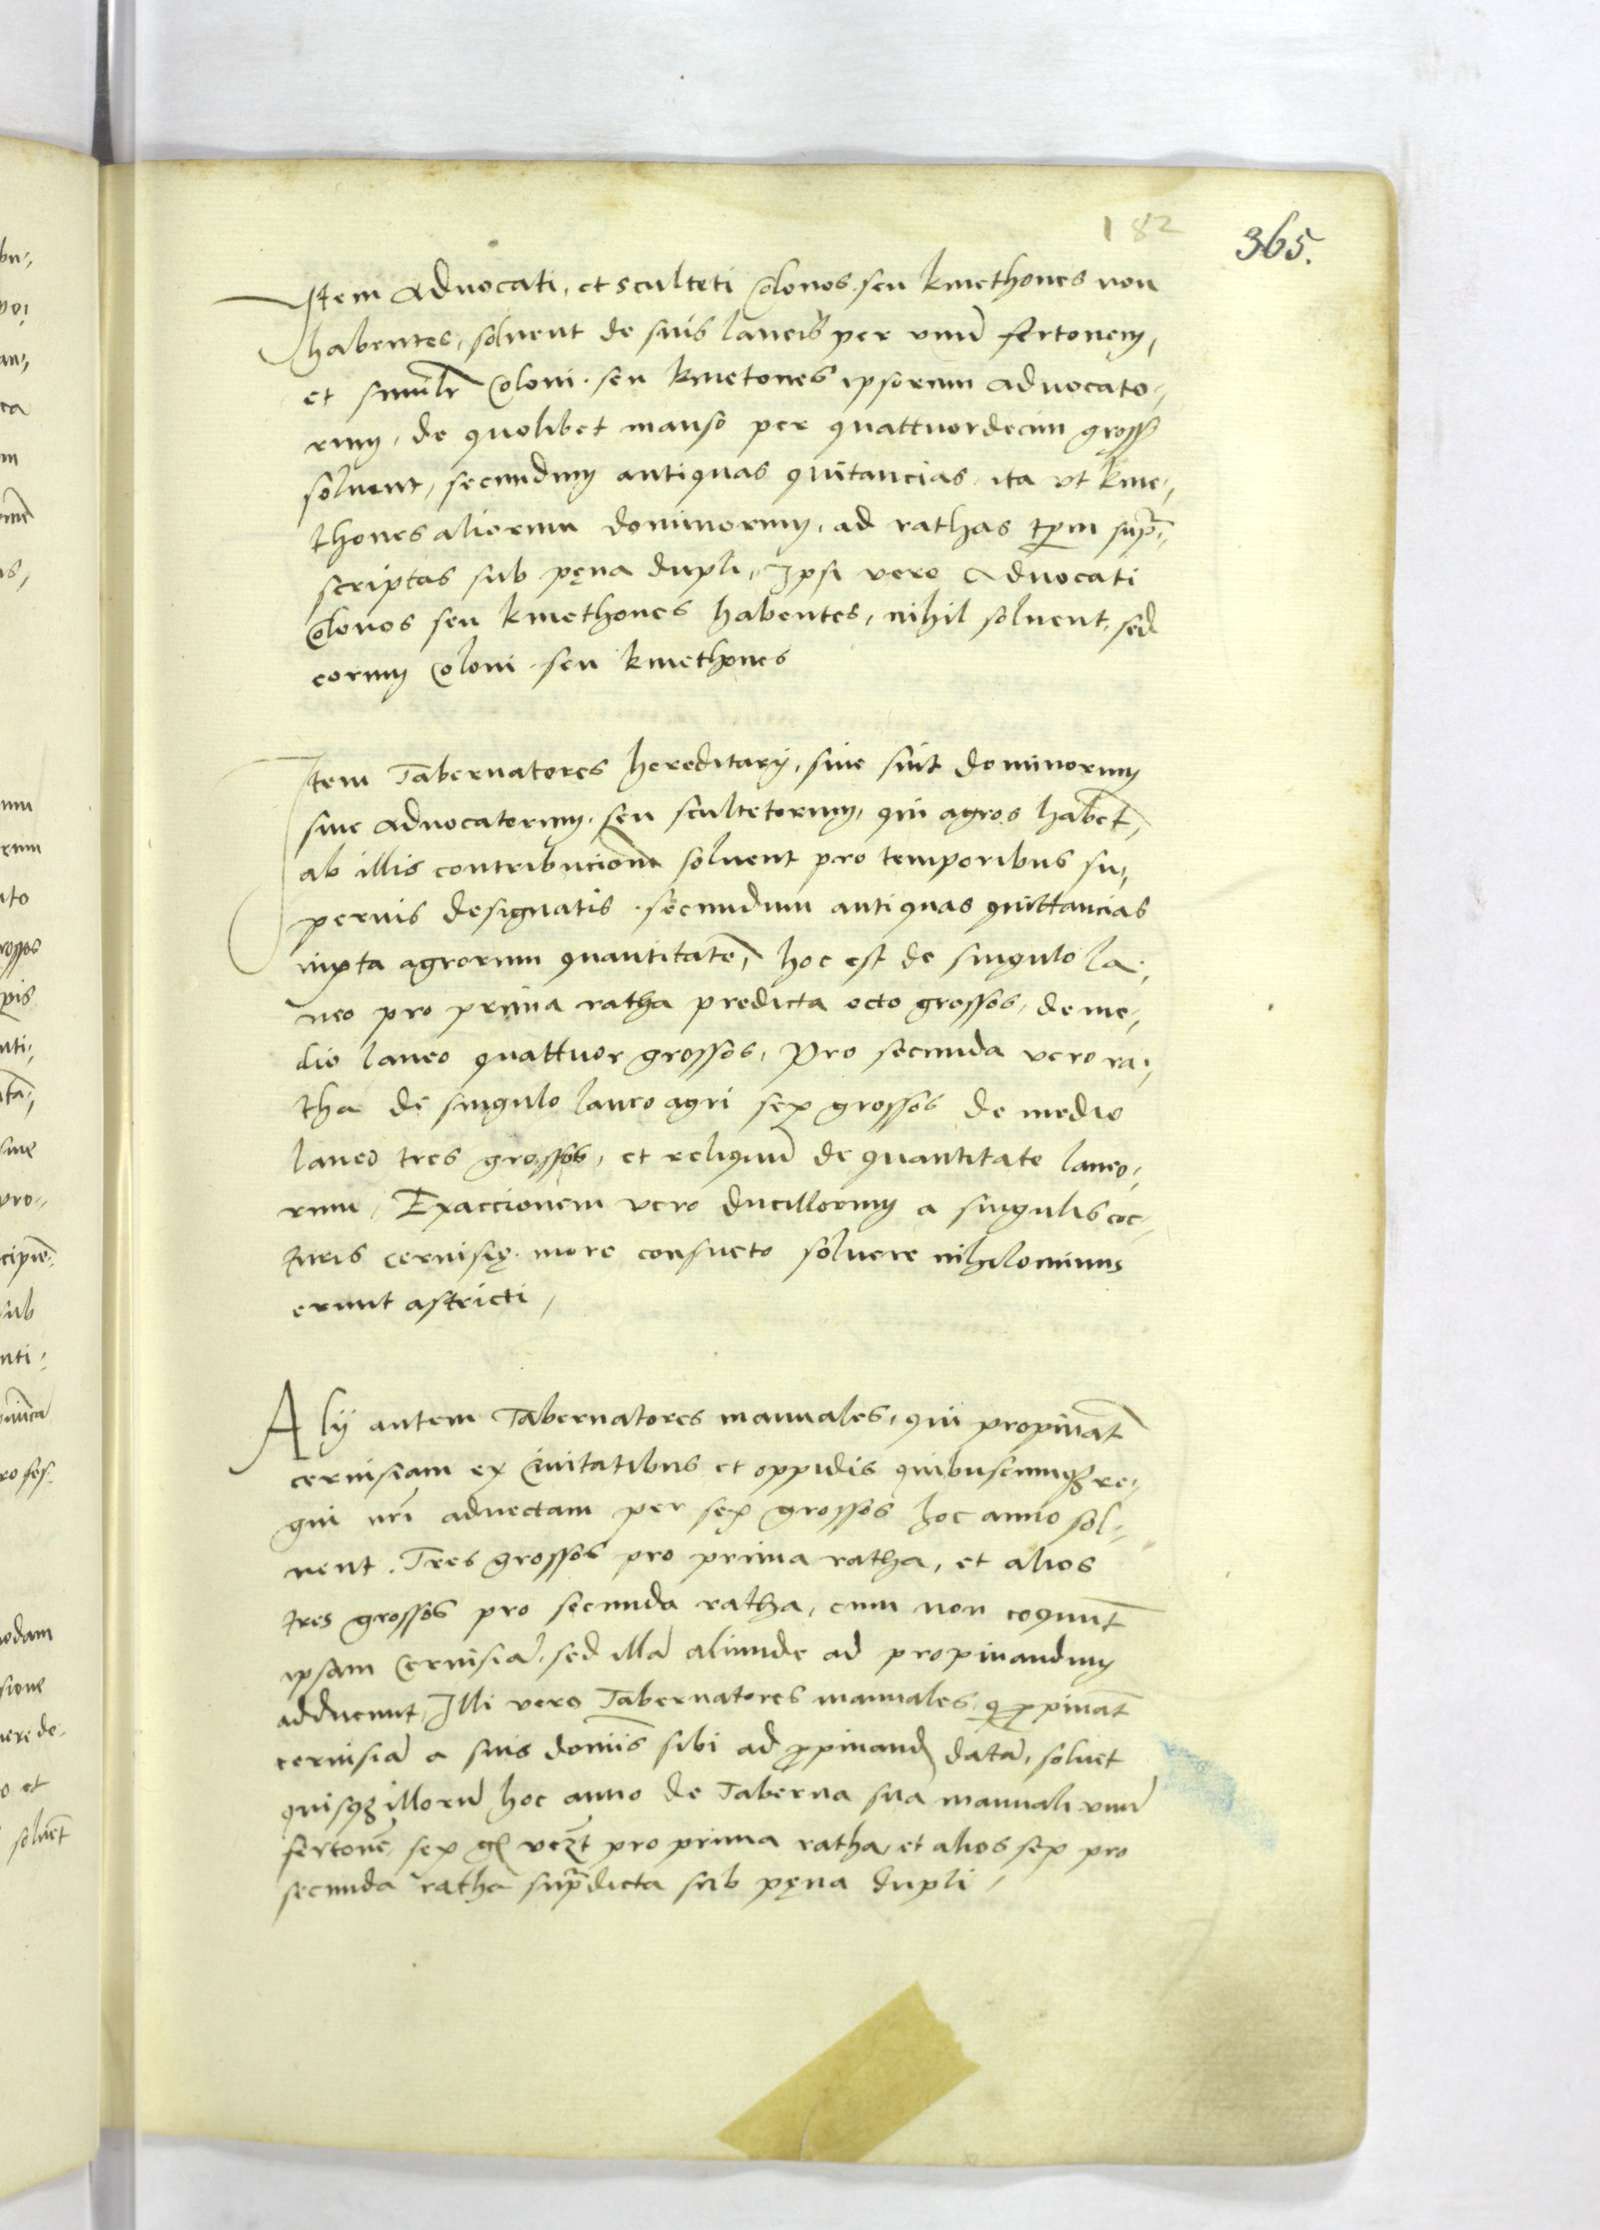 182
365.
Item Advocati, et sculteti colonos seu kmethones non
habentes, solvent de suis laneis per unu̅ fertonem,
et simil̅r coloni seu kmetones ipsorum advocato-
rum, de quolibet manso per quattuordecim gross
solvent, secundum antiquas quitancias, ita ut kme-
thones aliorum dominorum, ad rathas tp̅m sup̅-
scriptas sub pęna dupli, Ipsi vero Advocati
colonos seu kmethones habentes, nihil solvent, sed
eorum coloni seu kmethones
Item Tabernatores hereditarij, sive sint dominorum
sive advocatorum seu scultetorum, qui agros habe̅t,
ab illis contribucione̅ solvent pro temporibus su-
pernis designatis secundum antiquas quittancias
iuxta agrorum quantitate̅, hoc est de singulo la-
neo pro prima ratha predicta octo grossos, de me-
dio laneo quattuor grossos, Pro secunda vero ra-
tha de singulo laneo agri sex grossos de medio
laneo tres grossos, et reliquu̅ de quantitate laneo-
rum, Exaccionem vero ducillorum a singulis coc-
turis cervisię more consueto solvere nihilominus
erunt astricti,
Alij autem Tabernatores manuales, qui propina̅t
cervisiam ex civitatibus et oppidis quibuscunqꝫ re-
gni nr̅i advectam per sex grossos hoc anno sol-
vent. Tres grossos pro prima ratha, et alios
tres grossos pro secunda ratha, cum non coquu̅t
ipsam cervisia̅, sed illa̅ aliunde ad propinandum
adducunt, Illi vero Tabernatores manuales q̅ ꝓpina̅t
cervisia̅ a suis domi̅s sibi ad ꝓpinand data̅, solvet
quisqꝫ illoru̅ hoc anno de Taberna sua manuali unu̅
fertone̅, sex gr vꝫt pro prima ratha, et alios sex pro
secunda ratha sup̅dicta sub pęna dupli,